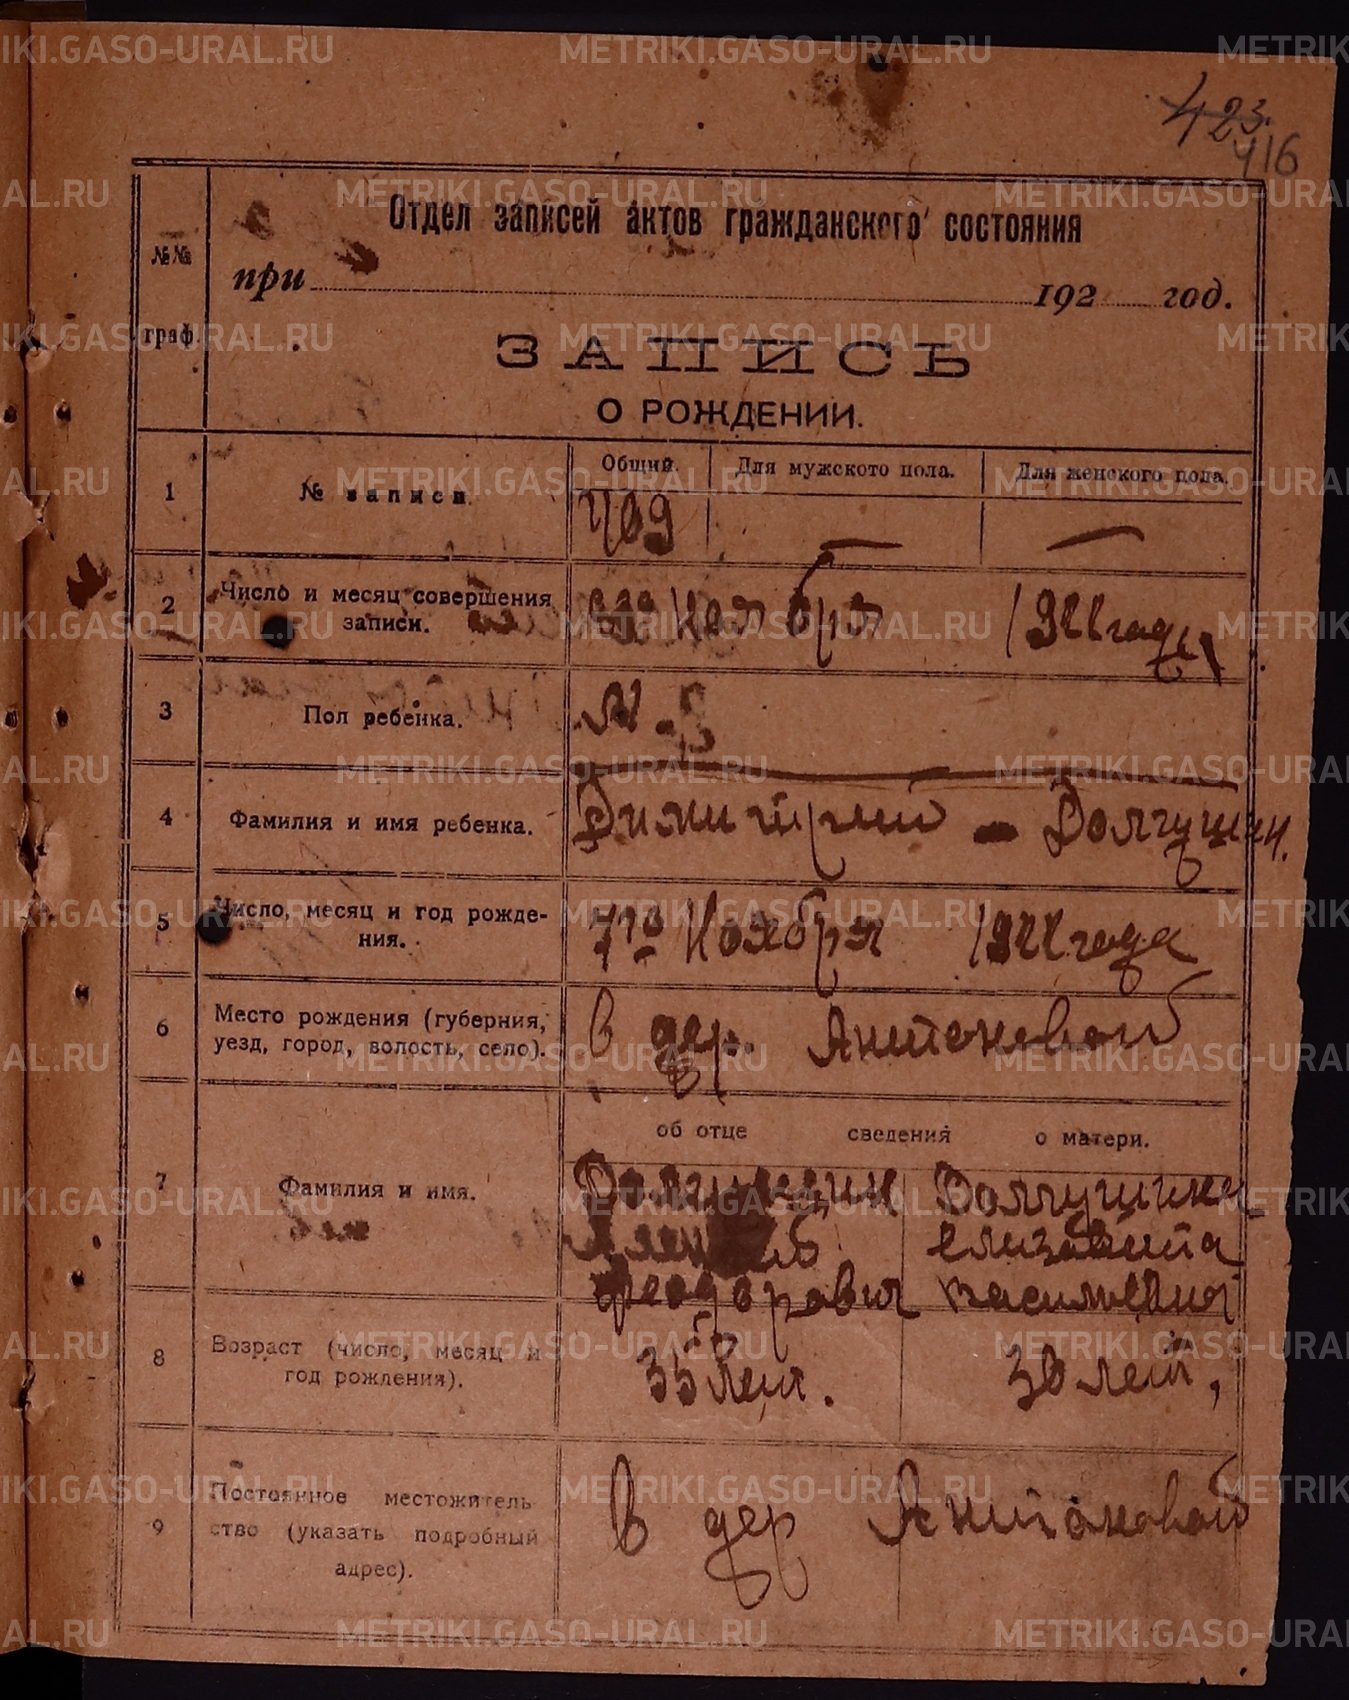 423.
416
№№
граф.
Отдел записей актов гражданского состояния
при 192 год.
ЗАПИСЬ
О РОЖДЕНИИ.
1
№ записи.
Общий.
Для мужского пола.
Для женского пола.
409
2
Число и месяц совершения
записи.
Ноября 1922 года
3
Пол ребенка.
М
4
Фамилия и имя ребенка.
Димитрий - Долгушин.
5
Число, месяц и год рожде-
ния.
7го Ноября 1922 года
6
Место рождения (губерния,
уезд, город, волость, село).
в дер. Антоновой
об отце сведения о матери.
7
Фамилия и имя.
Долгушин
Феодорович
Долгушина
Елизавета
Васильевна
8
Возраст (число, месяц и
год рождения).
35 лет.
30 лет,
9
Постоянное местожитель
ство (указать подробный
адрес).
в дер Антоновой
METRIKI.GASO-URAL.RU